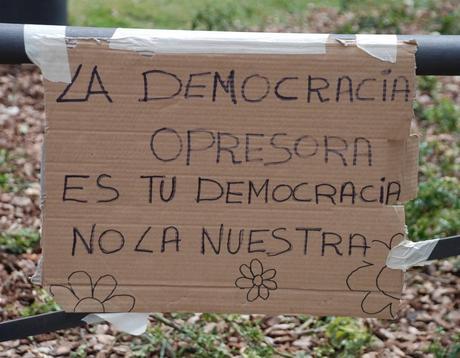 LA DEMOCRACIA
OPRESORA
ES TU DEMOCRACIA
NO LA NUESTRA